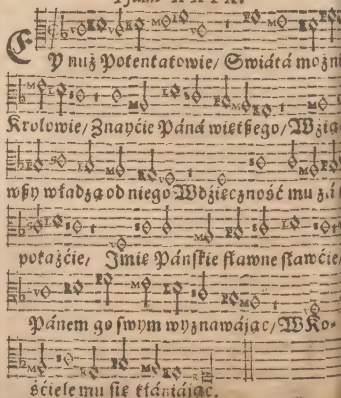 Psalm XXIX.
Ey nuż Potentatowie/ Swiátá możni
Krolowie/ Znayćie Páná więtßego/ Wżią
wßy władzą od niego Wdźięczność mu z.á
pokażćie/ Imię Páńſkie ſławne ſławćie/
Pánem go ſwym wyznawáiąc/ W Ko-
śćiele mu ſię kłániáiąc.